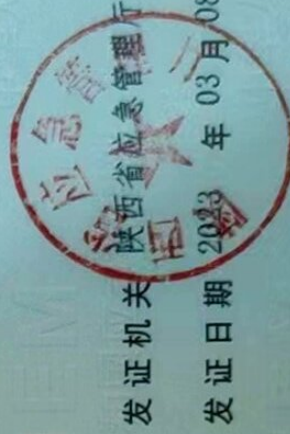 发证机关 陕西省应急管理厅
发证日期 2023 年 03 月 08